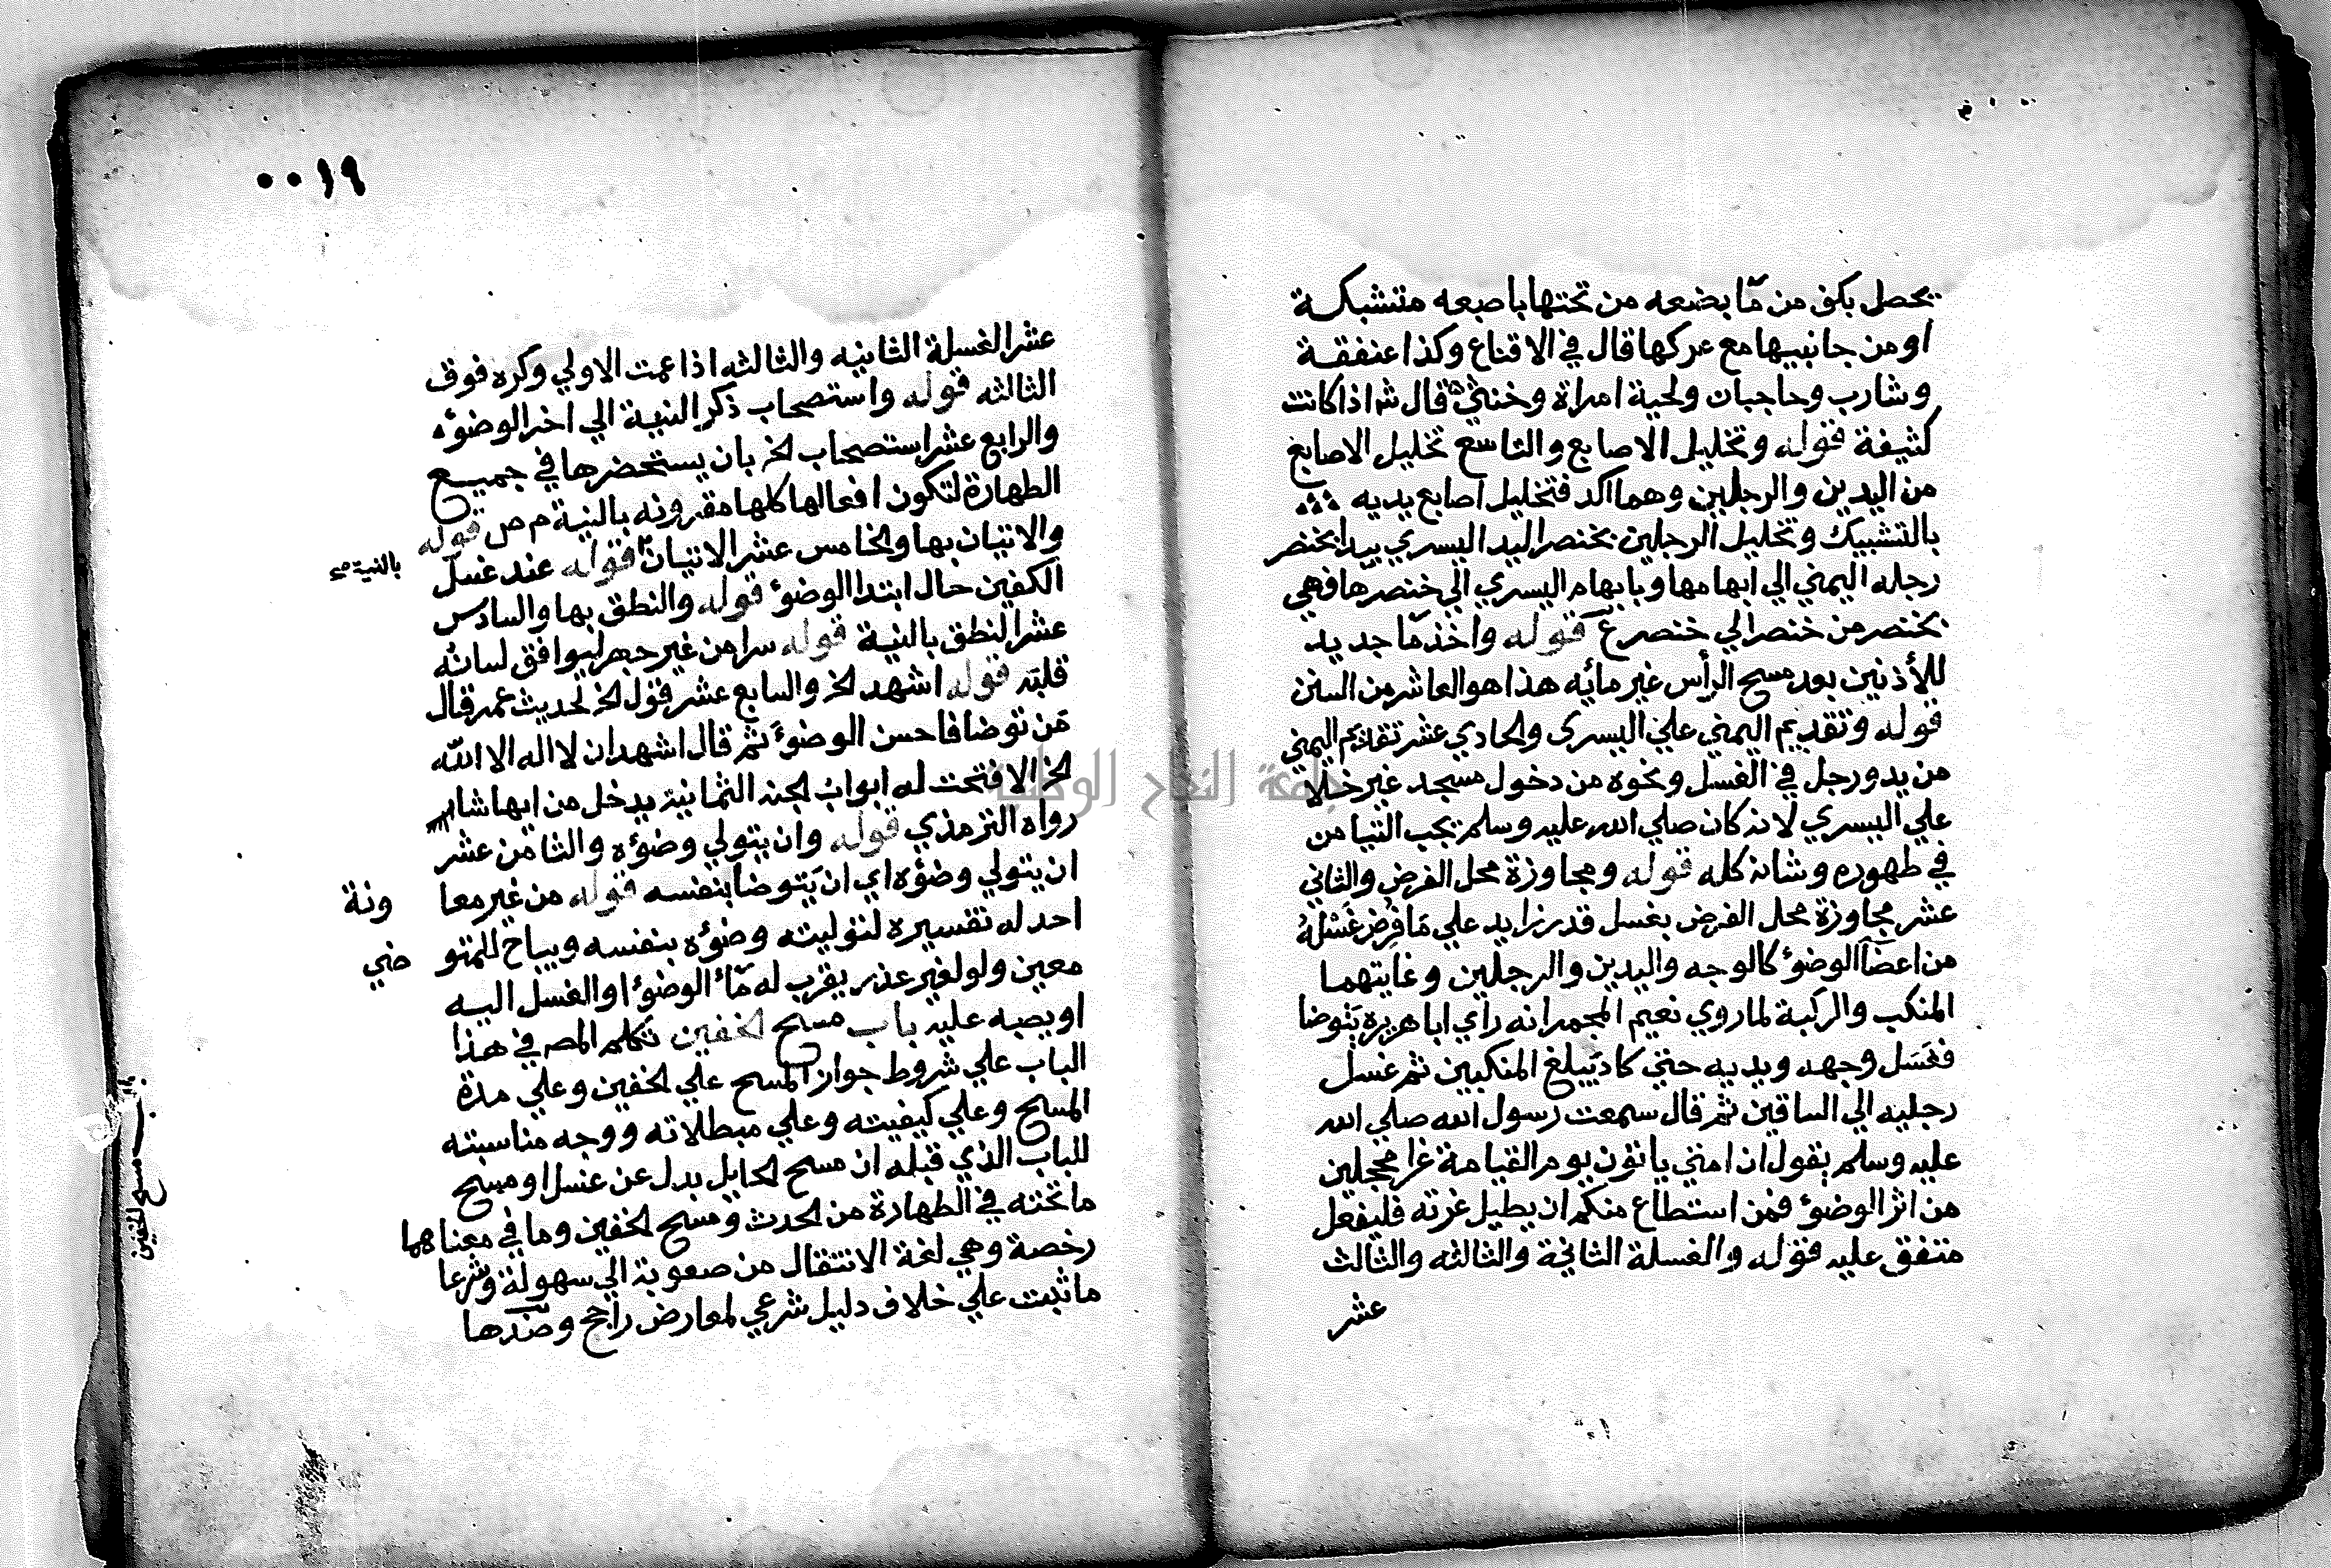 يحصل بكف من ما يضعه من تحتها باصبعه متشبكة
او من جانبيها مع عركها قال في الاقناع وكذا عنفقة
وشارب وحاجبان ولحية امراة وخنثي قال ش اذا كانت
كثيفة قوله وتخليل الاصابع والتاسع تخليل الاصابع
من اليدين والرجلين وهما اكد فتخليل اصابع يديه
بالتشبيك وتخليل الرجلين بخنصر اليد اليسري يبدا بخنصر
رجله اليمني الي ابهامها وبابهام اليسري الي خنصرها فهي
بخنصر من خنصر الي خنصر ع قوله واخذ ما جديد
للأذنين بعد مسح الرأس غير مائه هذا هو العاشر من السنن
قوله وتقديم اليمني علي اليسرى والحادي عشر تقديم اليمني
من يد ورجل في الغسل ونحوه من دخول مسجد غير خلا
علي اليسري لانه كان صلي الله عليه وسلم يحب التيامن
في طهوره وشانه كله قوله ومجاوزة محل الفرض والثاني
عشر مجاوزة محل الفرض بغسل قدر زايد علي مَا فُرِض غَسْلهُ
من اعضآ الوضوٴ كالوجه واليدين والرجلين وغايتهما
المنكب والركبة لما روي نعيم المجمر انه رأي ابا هريرة يتوضا
فغَسَل وجهه ويديه حتي كاد يَبلغ المنكبين ثم غسل
رجليه الي الساقين ثم قال سمعت رسول الله صلي الله
عليه وسلم يقول ان امتي ياتون يوم القيامة غرا محجلين
من اثر الوضوٴ فمن استطاع منكم ان يطيل غرته فليفعل
متفق عليه قوله والغسلة الثانية والثالثه والثالث
عشر
٠٠١٩
عشر الغسلة الثانيه والثالثه اذا عمت الاولي وكره فوق
الثالثه قوله واستصحاب ذكر النية الي اخر الوضوٴه
والرابع عشر استصحاب الخ بان يستحضرها في جميع
الطهارة لتكون افعالها كلها مقرونه بالنية م ص قوله
والاتيان بها والخامس عشر الاتيان قوله عند غسل
بالنية
الكفين حال ابتدا الوضوٴ قوله والنطق بها والسادس
عشر النطق بالنية قوله سرا من غير جهر ليوافق لسانُه
قلبَه قوله اشهد الخ والسابع عشر قول الخ لحديث عمر قال
مَن توضا فاحسن الوضوٴَ ثم قال اشهد ان لا اله الا الله
الخ الا فتحت له ابواب الجنه الثمانية يدخل من ايها شا
رواه الترمذي قوله وان يتولي وضوٴه والثامن عشر
ان يتولي وضوٴه اي ان يتوضا بنفسه قوله من غير معا ونة
احد له تفسيره لتوليته وضوٴه بنفسه ويباح للمتو ضي
معين ولو لغير عذر يقرب له مآٴ الوضوٴ او الغسل اليه
او يصبه عليه باب مسح الخفين تكلم المص في هذا
الباب علي شروط جواز المسح علي الخفين وعلي مدة
المسح وعلي كيفيته وعلي مبطلاته ووجه مناسبته
للباب الذي قبله ان مسح الحايل بدل عن غسل او مسح
ما تحته في الطهارة من الحدث ومسح الخفين وما في معناهما
رخصة وهي لغة الانتقال من صعوبة الي سهولة وشرعا
ما ثبت علي خلاف دليل شرعي لمعارض راجح وضدها
باب مسح الخفين
جامعة النجاح الوطنية